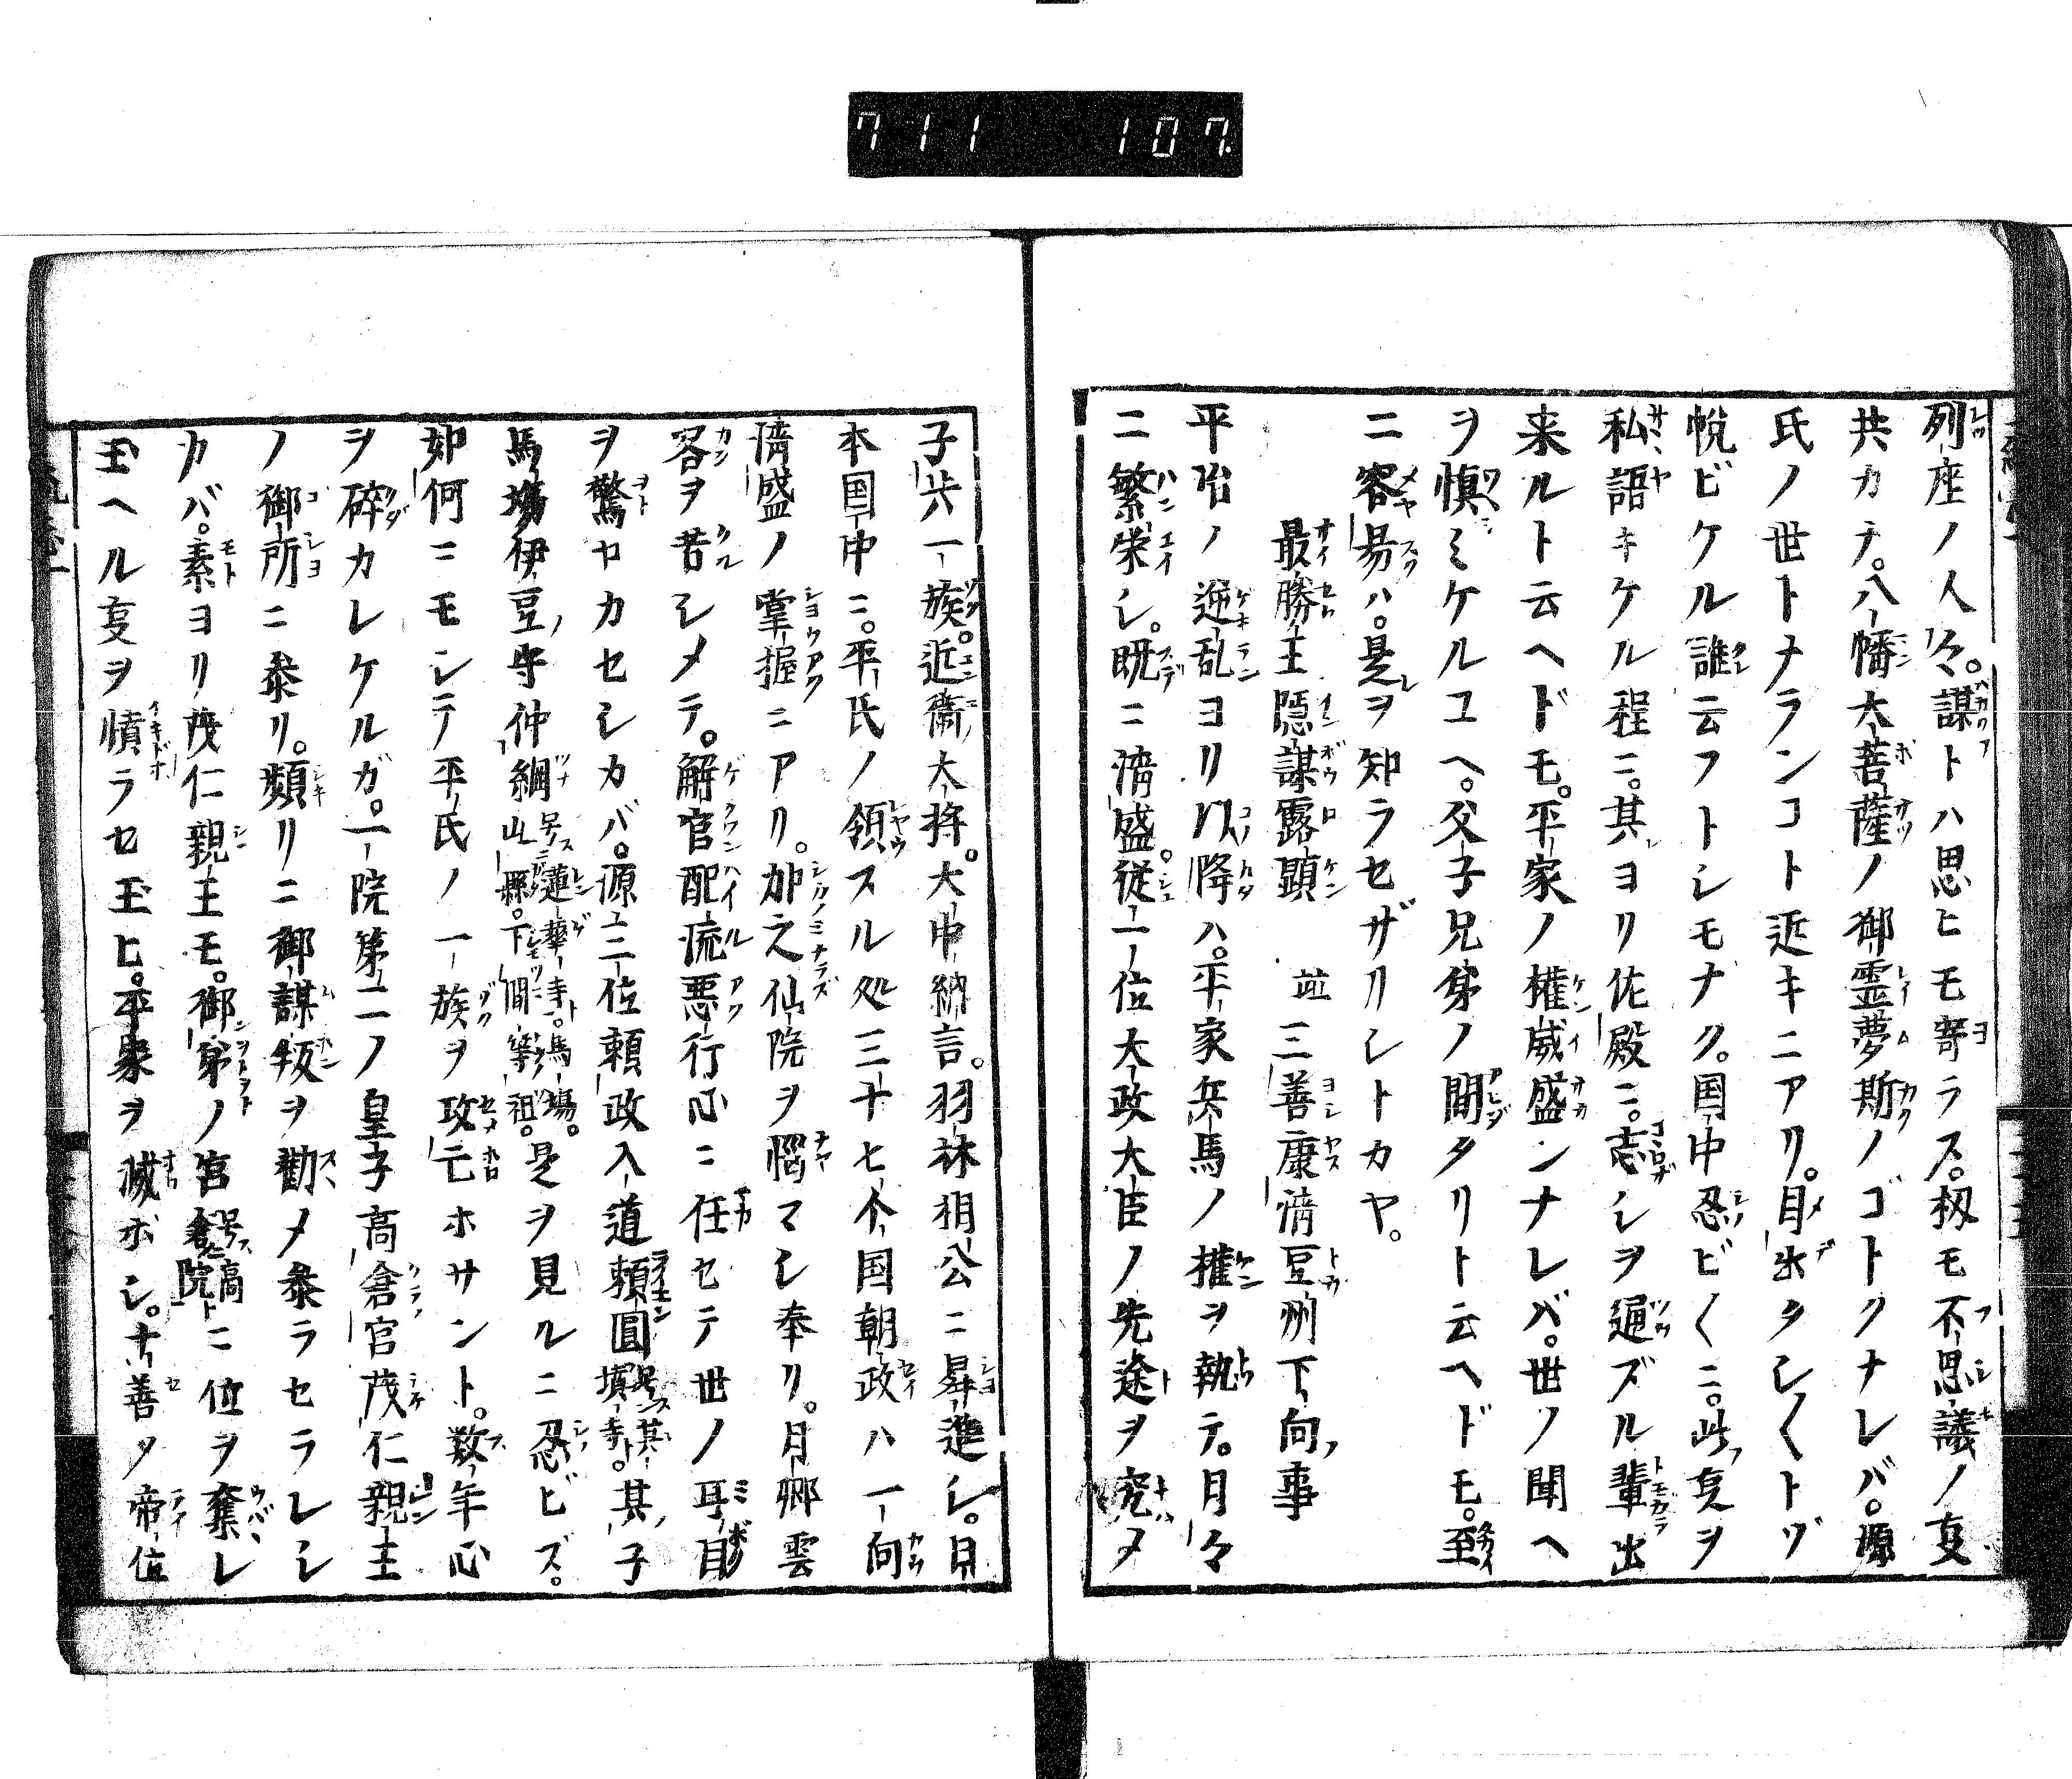 711 107
列座ノ人々。謀トハ思ヒモ寄ラス。扨モ不思議ノ叓
共カナ。八幡大菩薩ノ御霊夢斯ノゴトクナレバ。源
氏ノ世トナランコト近キニアリ。目出タシ〱トゾ
悦ビケル誰云フトシモナク。国中忍ビ〱ニ。此叓ヲ
私語キケル程ニ。其ヨリ佐殿ニ。志シヲ通ズル輩出
来ルト云ヘドモ。平家ノ権威盛ンナレバ。世ノ聞ヘ
ヲ慎ミケルユヘ。父子兄弟ノ間タリト云ヘドモ。至
ニ容易ハ。是ヲ知ラセザリシトカヤ。
最勝王隠謀露顕 並 三善康清豆州下向事
平治ノ逆乱ヨリ以降ハ。平家兵馬ノ権ヲ執テ。月々
ニ繁栄シ。既ニ清盛。従一位大政大臣ノ先途ヲ究メ
子共一族。近衛大将。大中納言。羽林相公ニ昇進シ。日
本国中ニ。平氏ノ領スル処三十七个国朝政ハ一向
清盛ノ掌握ニアリ。加之仙院ヲ悩マシ奉リ。月卿雲
客ヲ苦シメテ。解官配流悪行心ニ任セテ世ノ耳目
ヲ驚ヤカセシカバ。源三位頼政入道頼圓号ス其填寺ト。其子
馬場伊豆守仲綱号ス蓮華寺ト。馬場。山縣。下間等ノ祖。是ヲ見ルニ忍ビズ。
如何ニモシテ平氏ノ一族ヲ攻亡ホサント。数年心
ヲ碎カレケルガ。一院第二ノ皇子高倉宮茂仁親王
ノ御所ニ参リ。頻リニ御謀叛ヲ勧メ参ラセラレシ
カバ。素ヨリ茂仁親王モ。御弟ノ宮号ス高倉院トニ位ヲ奪レ
玉ヘル叓ヲ憤ラセ玉ヒ。平家ヲ滅ボシ。十善ノ帝位